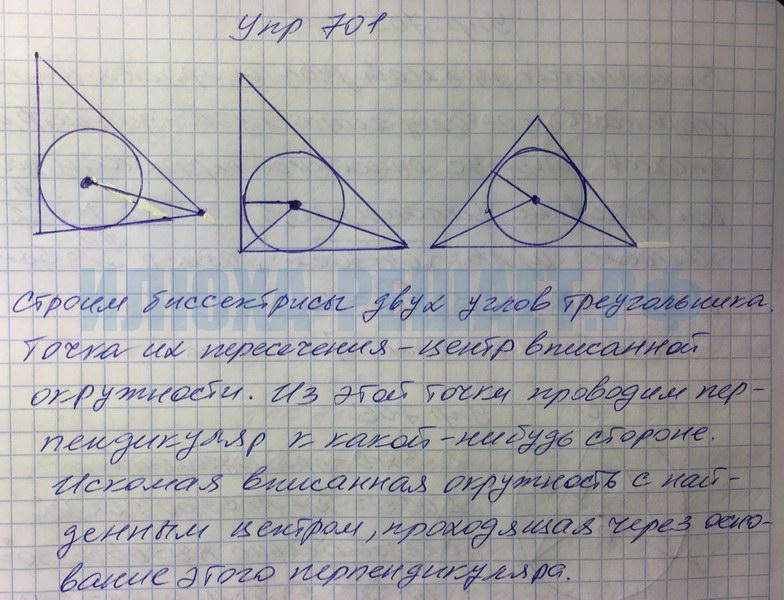 Упр 701
ИЛЮХА-РЕШАЕТ.РФ
Строим биссектрисы двух углов треугольника.
Точка их пересечения - центр вписанной
окружности. Из этой точки проводим пер-
пендикуляр к какой-нибудь стороне.
Искомая вписанная окружность с най-
денным центром, проходящая через осно-
вание этого перпендикуляра.